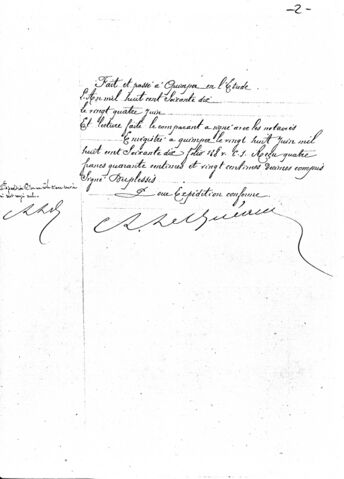 -2-
Fait et passé à Quimper en l'Etude
L'An mil huit cent soixante dix
le vingt quatre Juin
Et lecture faite le comparant a signé avec les notaires
Enregistré à Quimper le vingt huit Juin mil
huit cent soixante dix folio 168 v. C. 1. Reçu quatre
francs quarante centimes et vingt centimes decimes compris
Signé Duplessis
Pour Expédition conforme